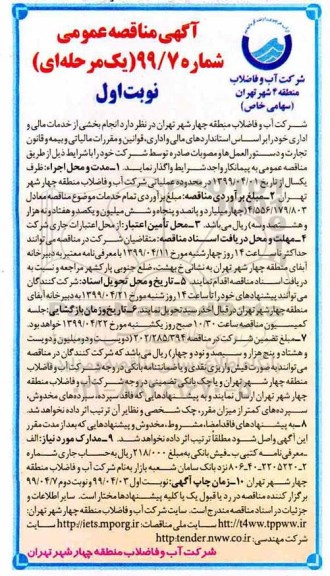 آگهی مناقصه عمومی
شماره ۹۹/۷ (یک مرحله‌ای)
نوبت اول
شرکت آب و فاضلاب
منطقه ۴ شهر تهران
(سهامی خاص)
شرکت آب و فاضلاب منطقه چهار شهر تهران در نظر دارد انجام بخشی از خدمات مالی و
اداری خود را بر اساس استانداردهای مالی و اداری، قوانین و مقررات مالیاتی و بیمه و قانون
تجارت و دستورالعمل‌ها و مصوبات صادره توسط شرکت خود را با شرایط ذیل از طریق
مناقصه عمومی به پیمانکار واجد شرایط واگذار نمایند. ۱-مدت و محل اجراء: ظرف
یکسال از تاریخ ۱۳۹۹/۰۵/۰۱ در محدوده عملیاتی شرکت آب و فاضلاب منطقه چهار شهر
تهران ۲-مبلغ برآوردی مناقصه: مبلغ برآوردی تمام خدمات موضوع مناقصه معادل
۴/۵۵۶/۱۷۹/۸۰۳ (چهار میلیارد و پانصد و پنجاه و شش میلیون و یکصد و هفتاد و نه هزار
و هشتصد و سه) ریال می باشد. ۳-محل تأمین اعتبار: از محل اعتبارات جاری شرکت
۴-مهلت و محل دریافت اسناد مناقصه: متقاضیان شرکت در مناقصه می توانند
حداکثر تا ساعت ۱۴ روز چهارشنبه مورخ ۱۳۹۹/۰۴/۱۱ با معرفی‌نامه معتبر به دبیرخانه
آبفای منطقه چهار شهر تهران به نشانی خ بهشت، ضلع جنوبی پارکشهر مراجعه و نسبت به
دریافت اسناد مناقصه اقدام نمایند ۵-تاریخ و محل تحویل اسناد: شرکت‌کنندگان
می توانند پیشنهادهای خود را تا ساعت ۱۴ روز شنبه مورخ ۱۳۹۹/۰۴/۲۱ به دبیرخانه آبفای
منطقه چهار شهر تهران در قبال أخذ رسید تحویل نمایند. ۶-تاریخ و زمان بازگشایی: جلسه
کمیسیون مناقصه ساعت ۱۰/۳۰ صبح روز یکشنبه مورخ ۱۳۹۹/۰۴/۲۲ خواهد بود.
۷-مبلغ تضمین شرکت در مناقصه ۲۰۲/۲۸۵/۳۹۴ (دویست و دو میلیون و دویست
و هشتاد و پنج هزار و سیصد و نود و چهار) ریال می باشد که شرکت کنندگان در مناقصه
می توانند به صورت فیش واریزی نقدی و یا ضمانتنامه بانکی در وجه شرکت آب و فاضلاب
منطقه چهار شهر تهران و یا چک بانکی تضمینی در وجه شرکت آب و فاضلاب منطقه
چهار شهر تهران ارسال نمایند و به پیشنهادهایی که فاقد سپرده، سپرده‌های مخدوش،
سپرده‌های کمتر از میزان مقرر، چک شخصی و نظایر آن ترتیب اثر داده نخواهد شد.
۸-به پیشنهادهای فاقد امضا، مشروط، مخدوش و پیشنهادهایی که بعد از مدت مقرر
این آگهی واصل شود مطلقاً ترتیب اثر داده نخواهد شد. ۹-مدارک مورد نیاز: الف
-معرفی‌نامه کتبی ب-فیش بانکی به مبلغ ۲۱۸/۰۰۰ ریال به حساب جاری شماره
نزد بانک سامان شعبه بازار به نام شرکت آب و فاضلاب
منطقه چهار شهر تهران ۱۰-زمان چاپ آگهی: نوبت اول ۹۹/۰۴/۰۳ و نوبت دوم ۹۹/۰۴/۰۷
برگزار کننده مناقصه در رد یا قبول یک یا کلیه پیشنهادها مختار است. سایر اطلاعات و
جزئیات در اسناد مناقصه مندرج است. سایت شرکت آب و فاضلاب منطقه چهار شهر تهران:
htt://t4ww.tppww.ir سایت ملی مناقصات: http://iets.mporg.ir سایت
شرکت مهندسی: http:tender.nww.co.ir
شرکت آب و فاضلاب منطقه چهار شهر تهران